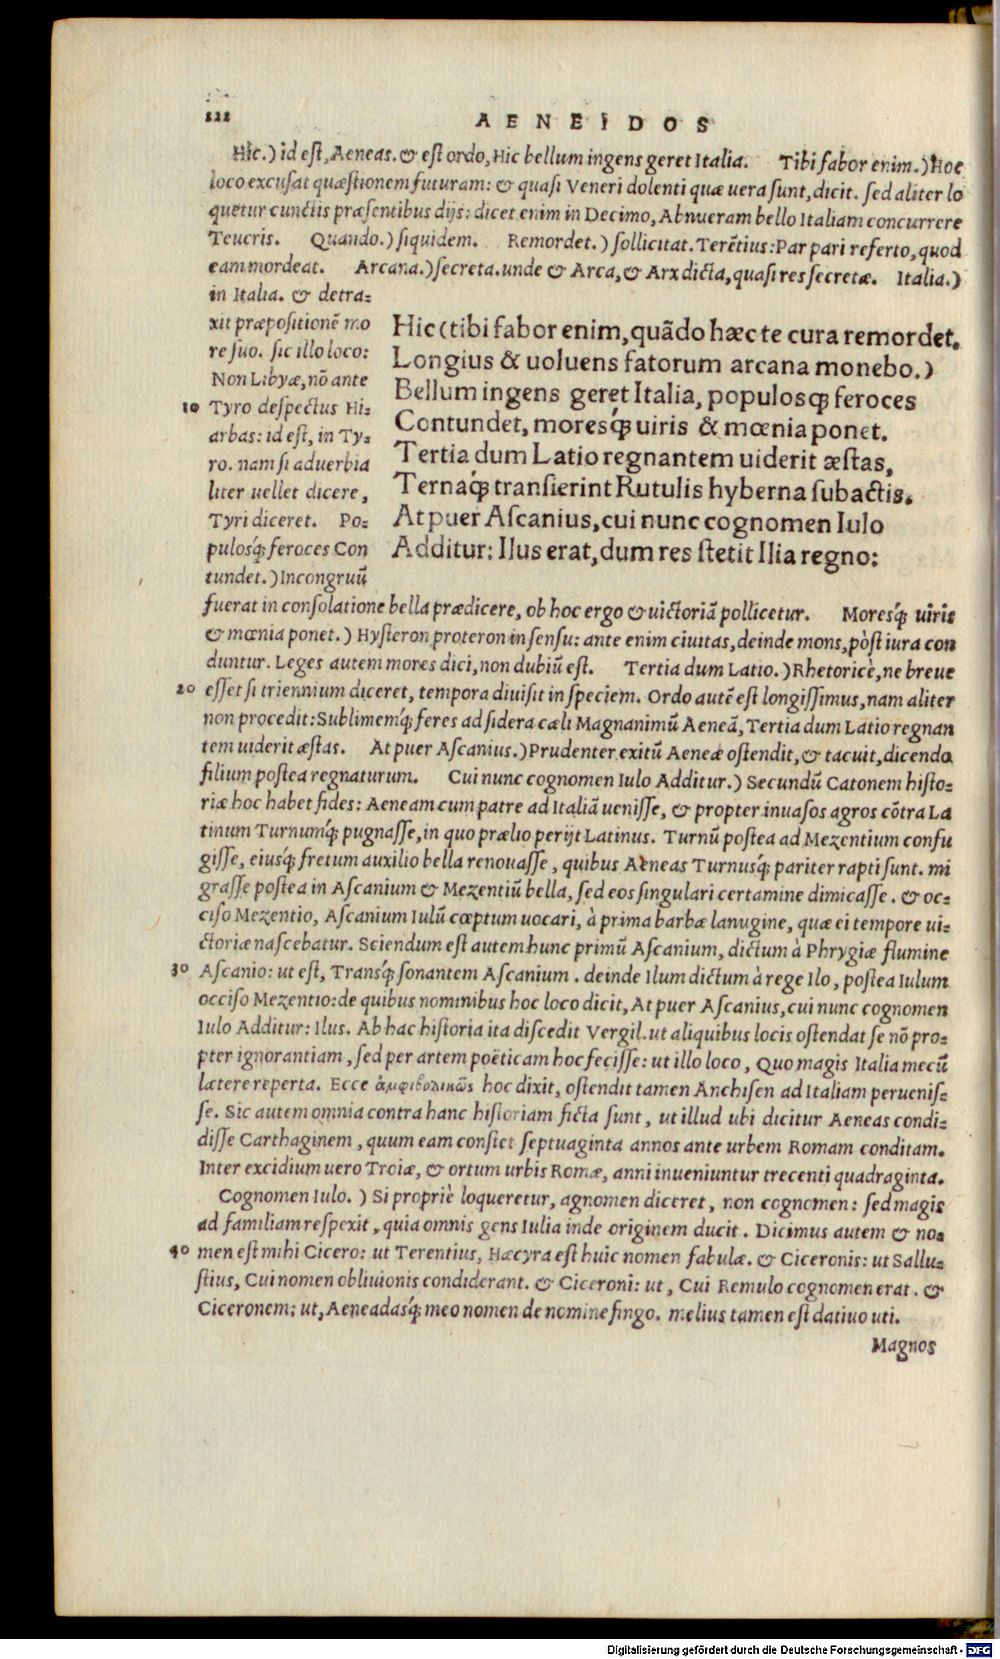 222
AENEIDOS
Hic.) id eſt, Aeneas. & eſt ordo, Hic bellum ingens geret Italia. Tibi fabor enim.) Hoc
loco excuſat quæſtionem futuram: & quaſi Veneri dolenti quæ uera ſunt, dicit. ſed aliter lo
quetur cunctis præſentibus dijs: dicet enim in Decimo, Abnueram bello Italiam concurrere
Teucris. Quando.) ſiquidem. Remordet.) ſollicitat. Terẽtius: Par pari referto, quod
eam mordeat. Arcana.) ſecreta. unde & Arca, & Arx dicta, quaſi res ſecretæ. Italia.)
in Italia. & detra-
xit præpoſitionẽ mo
re ſuo. ſic illo loco:
Non Libyæ, nõ ante
10 Tyro deſpectus Hi-
arbas: id eſt, in Ty-
ro. nam ſi aduerbia
liter uellet dicere,
Tyri diceret. Po-
pulosq́; feroces Con
tundet.) Incongruũ
Hic (tibi fabor enim, quãdo hæc te cura remordet.
Longius & uoluens fatorum arcana monebo.)
Bellum ingens geret Italia, populosq; feroces
Contundet, moresq́; uiris & mœnia ponet.
Tertia dum Latio regnantem uiderit æſtas,
Ternaq́; tranſierint Rutulis hyberna ſubactis.
At puer Aſcanius, cui nunc cognomen Iulo
Additur: Ilus erat, dum res ſtetit Ilia regno:
fuerat in conſolatione bella prædicere, ob hoc ergo & uictoriã pollicetur. Moresq́; uiris
& mœnia ponet.) Hyſteron proteron in ſenſu: ante enim ciuitas, deinde mons, pòſt iura con
duntur. Leges autem mores dici, non dubiũ eſt. Tertia dum Latio.) Rhetoricè, ne breue
20 eſſet ſi triennium diceret, tempora diuiſit in ſpeciem. Ordo autẽ eſt longiſſimus, nam aliter
non procedit: Sublimemq́; feres ad ſidera cæli Magnanimũ Aeneã, Tertia dum Latio regnan
tem uiderit æſtas. At puer Aſcanius.) Prudenter exitũ Aeneæ oſtendit, & tacuit, dicendo
filium poſtea regnaturum. Cui nunc cognomen Iulo Additur.) Secundũ Catonem hiſto-
riæ hoc habet fides: Aeneam cum patre ad Italiã ueniſſe, & propter inuaſos agros cõtra La
tinum Turnumq́; pugnaſſe, in quo prælio perijt Latinus. Turnũ poſtea ad Mezentium confu
giſſe, eiusq́; fretum auxilio bella renouaſſe, quibus Aeneas Turnusq́; pariter rapti ſunt. mi
graſſe poſtea in Aſcanium & Mezentiũ bella, ſed eos ſingulari certamine dimicaſſe. & oc-
ciſo Mezentio, Aſcanium Iulũ cœptum uocari, à prima barbæ lanugine, quæ ei tempore ui-
ctoriæ naſcebatur. Sciendum eſt autem hunc primũ Aſcanium, dictum à Phrygiæ flumine
30 Aſcanio: ut eſt, Transq́; ſonantem Aſcanium. deinde Ilum dictum à rege Ilo, poſtea Iulum
occiſo Mezentio: de quibus nominibus hoc loco dicit, At puer Aſcanius, cui nunc cognomen
Iulo Additur: Ilus. Ab hac hiſtoria ita diſcedit Vergil. ut aliquibus locis oſtendat ſe nõ pro-
pter ignorantiam, ſed per artem poëticam hoc feciſſe: ut illo loco, Quo magis Italia mecũ
latere reperta. Ecce ἀμφιβολικῶς hoc dixit, oſtendit tamen Anchiſen ad Italiam perueniſ-
ſe. Sic autem omnia contra hanc hiſtoriam ficta ſunt, ut illud ubi dicitur Aeneas condi-
diſſe Carthaginem, quum eam conſtet ſeptuaginta annos ante urbem Romam conditam.
Inter excidium uero Troiæ, & ortum urbis Romæ, anni inueniuntur trecenti quadraginta.
Cognomen Iulo.) Si propriè loqueretur, agnomen diceret, non cognomen: ſed magis
ad familiam reſpexit, quia omnis gens Iulia inde originem ducit. Dicimus autem & no-
40 men eſt mihi Cicero: ut Terentius, Hæcyra eſt huic nomen fabulæ. & Ciceronis: ut Sallu-
ſtius, Cui nomen obliuionis condiderant. & Ciceroni: ut, Cui Remulo cognomen erat. &
Ciceronem: ut, Aeneadasq́; meo nomen de nomine fingo. melius tamen eſt datiuo uti.
Magnos
Digitalisierung gefördert durch die Deutsche Forschungsgemeinschaft - DFG